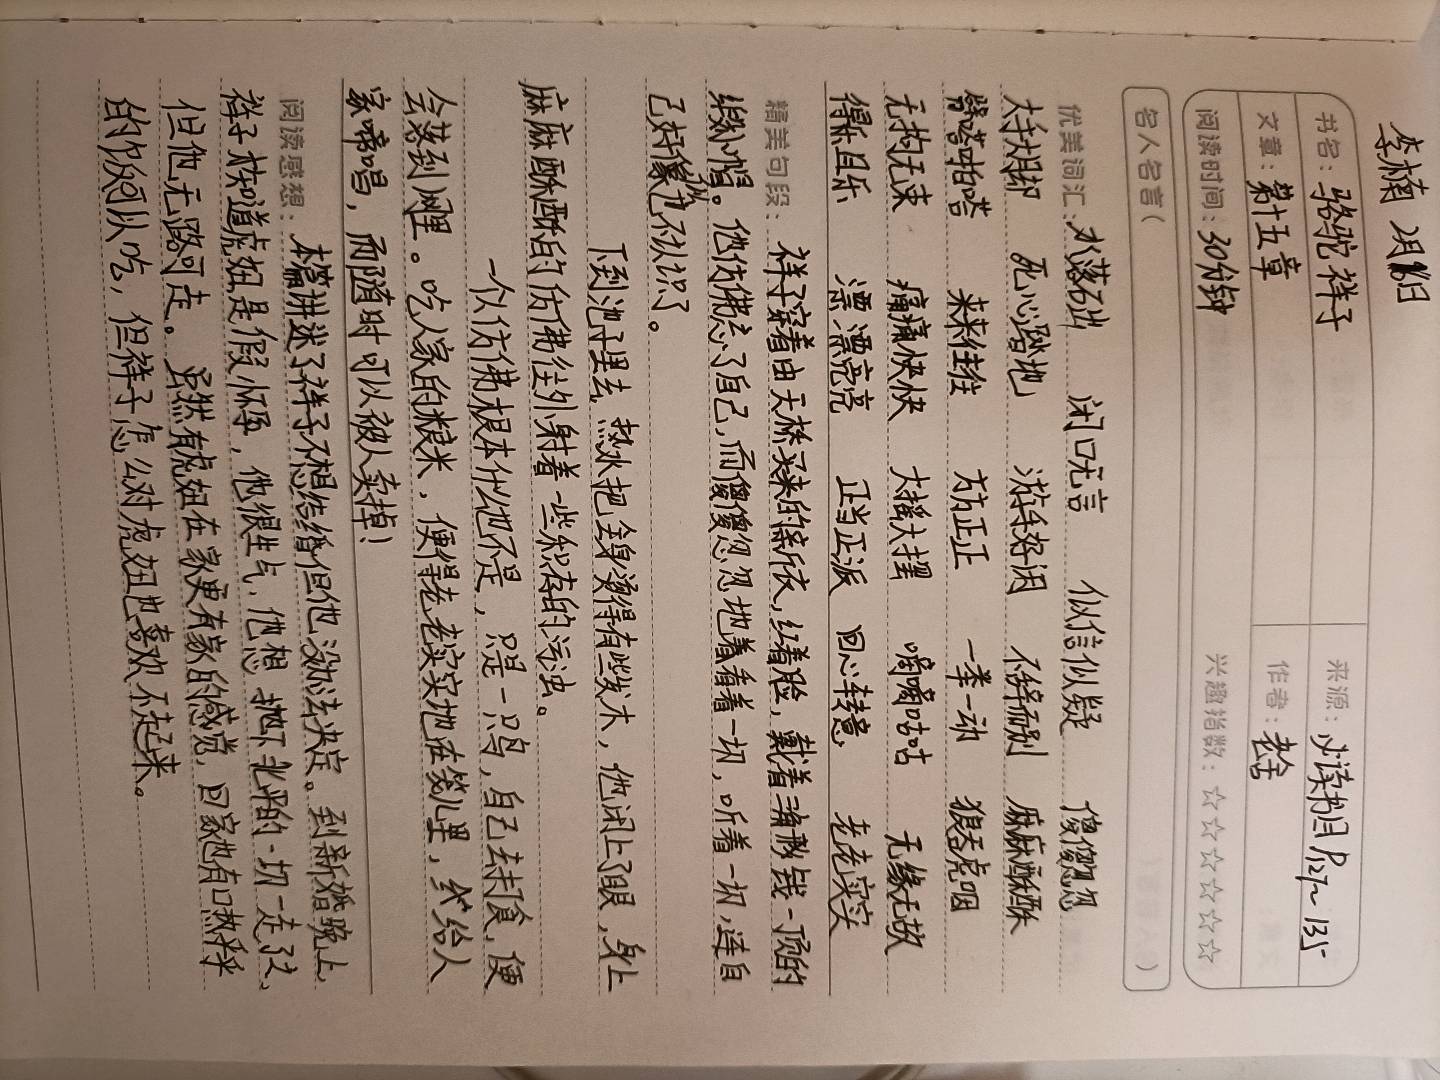 李楠 2月16日
书名：骆驼祥子 来源：必读书目P127~135
文章：第十五章 作者：老舍
阅读时间：30分钟 兴趣指数：☆☆☆☆☆☆
名人名言（ ）
优美词汇：水落石出 闭口无言 似信似疑 傻傻忽忽
大手大脚 死心踏地 游手好闲 不辞而别 麻麻酥酥
噼嗒啪嗒 来来往往 方方正正 一拳一动 狼吞虎咽
无拘无束 痛痛快快 大摇大摆 嘀嘀咕咕 无缘无故
得乐且乐 漂漂亮亮 正当正派 回心转意 老老实实
精美句段：祥子穿着由天桥买来的新衣，红着脸，戴着三角钞钱一顶的
缎小帽。他仿佛忘了自己，而傻傻忽忽地看着一切，听着一切，连自
己好像也不认识了。
下到池子里去，热水把全身烫得有些发木，他闭上了眼，身上
麻麻酥酥的仿佛往外射着一些积存的污浊。
一个仿佛根本什么也不是，只是一只鸟，自己去打食，便
会落到网里。吃人家的粮米，便得老老实实地在笼儿里，给人
家啼唱，而随时可以被人卖掉！
阅读感想：本篇讲述了祥子不想结婚但他没办法决定。到新婚晚上，
祥子才知道虎妞是假怀孕，他很生气，他想抛下北平的一切一走了之，
但他无路可走。虽然有虎妞在家更有家的感觉，回家也有口热乎
的饭可以吃，但祥子怎么对虎妞也喜欢不起来。